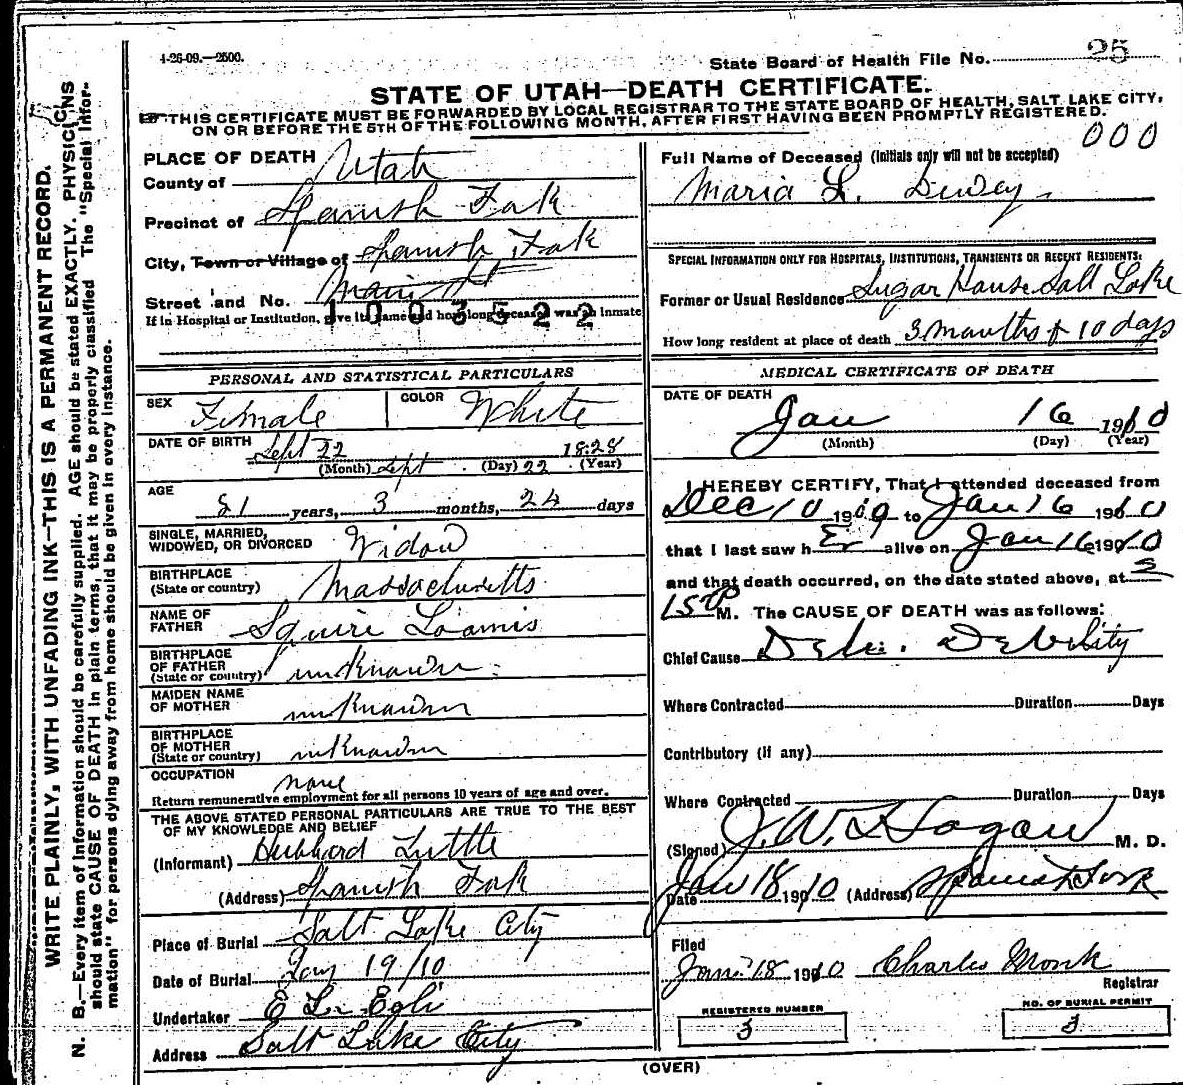 4-26-09.—2500.
State Board of Health File No. 25
STATE OF UTAH—DEATH CERTIFICATE.
THIS CERTIFICATE MUST BE FORWARDED BY LOCAL REGISTRAR TO THE STATE BOARD OF HEALTH, SALT LAKE CITY,
ON OR BEFORE THE 5TH OF THE FOLLOWING MONTH, AFTER FIRST HAVING BEEN PROMPTLY REGISTERED.
000
WRITE PLAINLY, WITH UNFADING INK—THIS IS A PERMANENT RECORD.
N. B.—Every item of information should be carefully supplied. AGE should be stated EXACTLY. PHYSICIANS
should state CAUSE OF DEATH in plain terms, that it may be properly classified The "Special Infor-
mation" for persons dying away from home should be given in every instance.
PLACE OF DEATH
County of Utah
Precinct of Spanish Fork
City, Town or Village of Spanish Fork
Street and No. Main St
1003522
If in Hospital or Institution, give its name and how long deceased was an inmate
PERSONAL AND STATISTICAL PARTICULARS
SEX Female COLOR White
DATE OF BIRTH Sept 22 1828
(Month) Sept (Day) 22 (Year)
AGE 81 years, 3 months, 24 days
SINGLE, MARRIED,
WIDOWED, OR DIVORCED Widow
BIRTHPLACE
(State or country) Massachusetts
NAME OF
FATHER Squire Loamis
BIRTHPLACE
OF FATHER
(State or country) unknown
MAIDEN NAME
OF MOTHER unknown
BIRTHPLACE
OF MOTHER
(State or country) unknown
OCCUPATION none
Return remunerative employment for all persons 10 years of age and over.
THE ABOVE STATED PERSONAL PARTICULARS ARE TRUE TO THE BEST
OF MY KNOWLEDGE AND BELIEF
(Informant) Hubbard Tuttle
(Address) Spanish Fork
Place of Burial Salt Lake City
Date of Burial Jany 19/10
Undertaker E L. Egli
Address Salt Lake City
Full Name of Deceased (Initials only will not be accepted)
Maria L. Dewey
SPECIAL INFORMATION ONLY FOR HOSPITALS, INSTITUTIONS, TRANSIENTS OR RECENT RESIDENTS:
Former or Usual Residence Sugar House Salt Lake
How long resident at place of death 3 months & 10 days
MEDICAL CERTIFICATE OF DEATH
DATE OF DEATH
Jan 16 1910
(Month) (Day) (Year)
I HEREBY CERTIFY, That I attended deceased from
Dec 10 1909 to Jan 16 1910
that I last saw her alive on Jan 16 1910
and that death occurred, on the date stated above, at 5
15 P M. The CAUSE OF DEATH was as follows:
Chief Cause Debility
Where Contracted Duration Days
Contributory (if any)
Where Contracted Duration Days
(Signed) J. W. Hogan M. D.
Date Jan 18 1910 (Address) Spanish Fork
Filed
Jan 18 1910 Charles Monk
Registrar
REGISTERED NUMBER
3
NO. OF BURIAL PERMIT
3
(OVER)